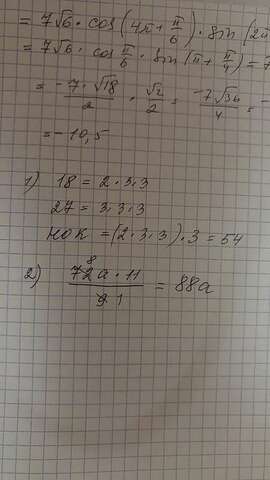 = 7√6 · cos(4π + π/6) · sin(2π
= 7√6 · cos π/6 · sin(π + π/4) = 7
= -7·√18/2 · √2/2 = -7√36/4 = -
= -10,5
1) 18 = 2·3·3
27 = 3·3·3
НОК = (2·3·3)·3 = 54
2) 72⁸a·11/9·1 = 88a